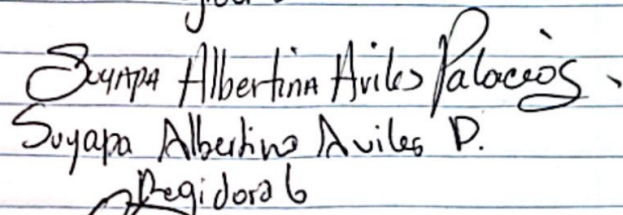 Suyapa Albertina Aviles Palacios
Suyapa Albertina Aviles P.
Regidora 6